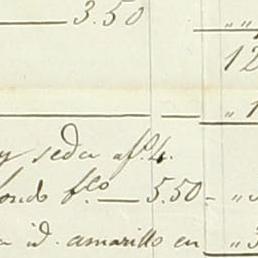 3.50 „ „
12
„ 1
y seda af.º 4.
fondo f.co 5.50 - „
id. amarillo en „ 3